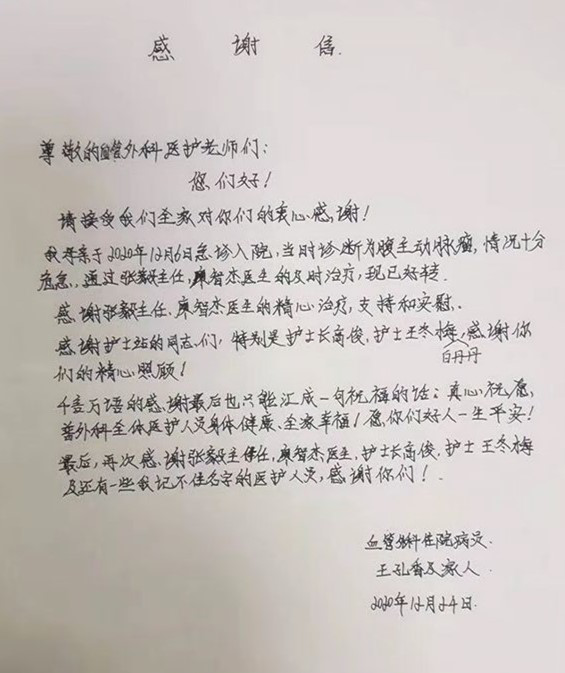 感谢信.
尊敬的血管外科医护老师们:
您们好!
请接受我们全家对你们的衷心感谢!
我母亲于2020年12月6日急诊入院,当时诊断为腹主动脉瘤,情况十分
危急,通过张毅主任,康智杰医生的及时治疗,现已好转.
感谢张毅主任、康智杰医生的精心治疗,支持和安慰.
感谢护士站的同志们,特别是护士长高俊,护士王冬梅,感谢你
白丹丹
们的精心照顾!
千言万语的感谢最后也只能汇成一句祝福的话:真心祝愿,
普外科全体医护人员身体健康、全家幸福!愿你们好人一生平安!
最后,再次感谢张毅主任,康智杰医生,护士长高俊,护士王冬梅
及还有一些我记不住名字的医护人员,感谢你们!
血管外科住院病员
王孔香及家人
2020年12月24日.